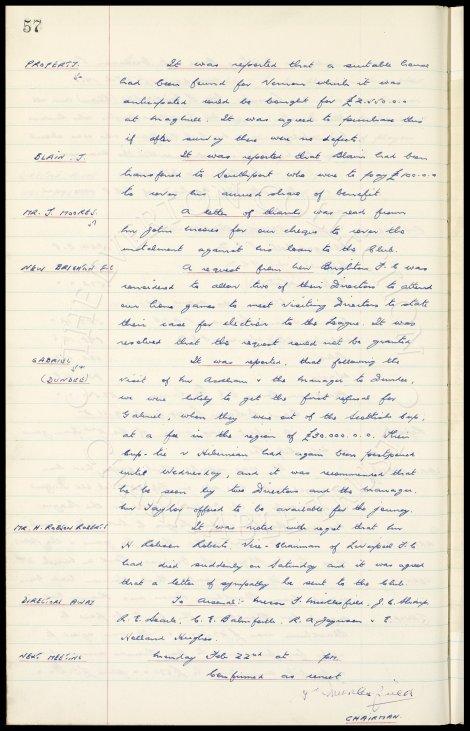 57
PROPERTY. It was reported that a suitable house
had been found for Vernon which it was
anticipated could be bought for £2.450.0.0
at Maghull. It was agreed to purchase this
if after survey there were no defects.
BLAIN. J. It was reported that Blain had been
transferred to Southport who were to pay £100.0.0
to cover his accrued share of benefit
MR. J. MOORES. A letter of thanks was read from
Mr John Moores for our cheque to cover the
instalment against his loan to the Club.
NEW BRIGHTON F.C A request from New Brighton F.C was
considered to allow two of their Directors to attend
our home games to meet visiting Directors to state
their case for election to the League. It was
resolved that the request could not be granted
GABRIEL It was reported, that following the
(DUNDEE) visit of Mr & the Manager to Dundee,
we were likely to get the first refusal for
Gabriel, when they were out of the Scottish Cup,
at a fee in the region of £30.000.0.0. Their
Cup-tie v Hibernian had again been postponed
until Wednesday, and it was recommended that
he be seen by two Directors and the Manager,
Mr Taylor offered to be available for the journey.
MR. H. ROBSON ROBERTS It was noted with regret that Mr
H. Robson Roberts, Vice-Chairman of Liverpool F.C
had died suddenly on Saturday and it was agreed
that a letter of sympathy be sent to the Club.
DIRECTORS AWAY To Arsenal:- Messrs F. Micklesfield, J. C. Sharp,
R. E. Searle, C. E. Balmforth, R. A. Joynson & E.
Holland Hughes.
NEXT MEETING Monday Feb 22nd at pm.
Confirmed as correct
Micklesfield
CHAIRMAN.